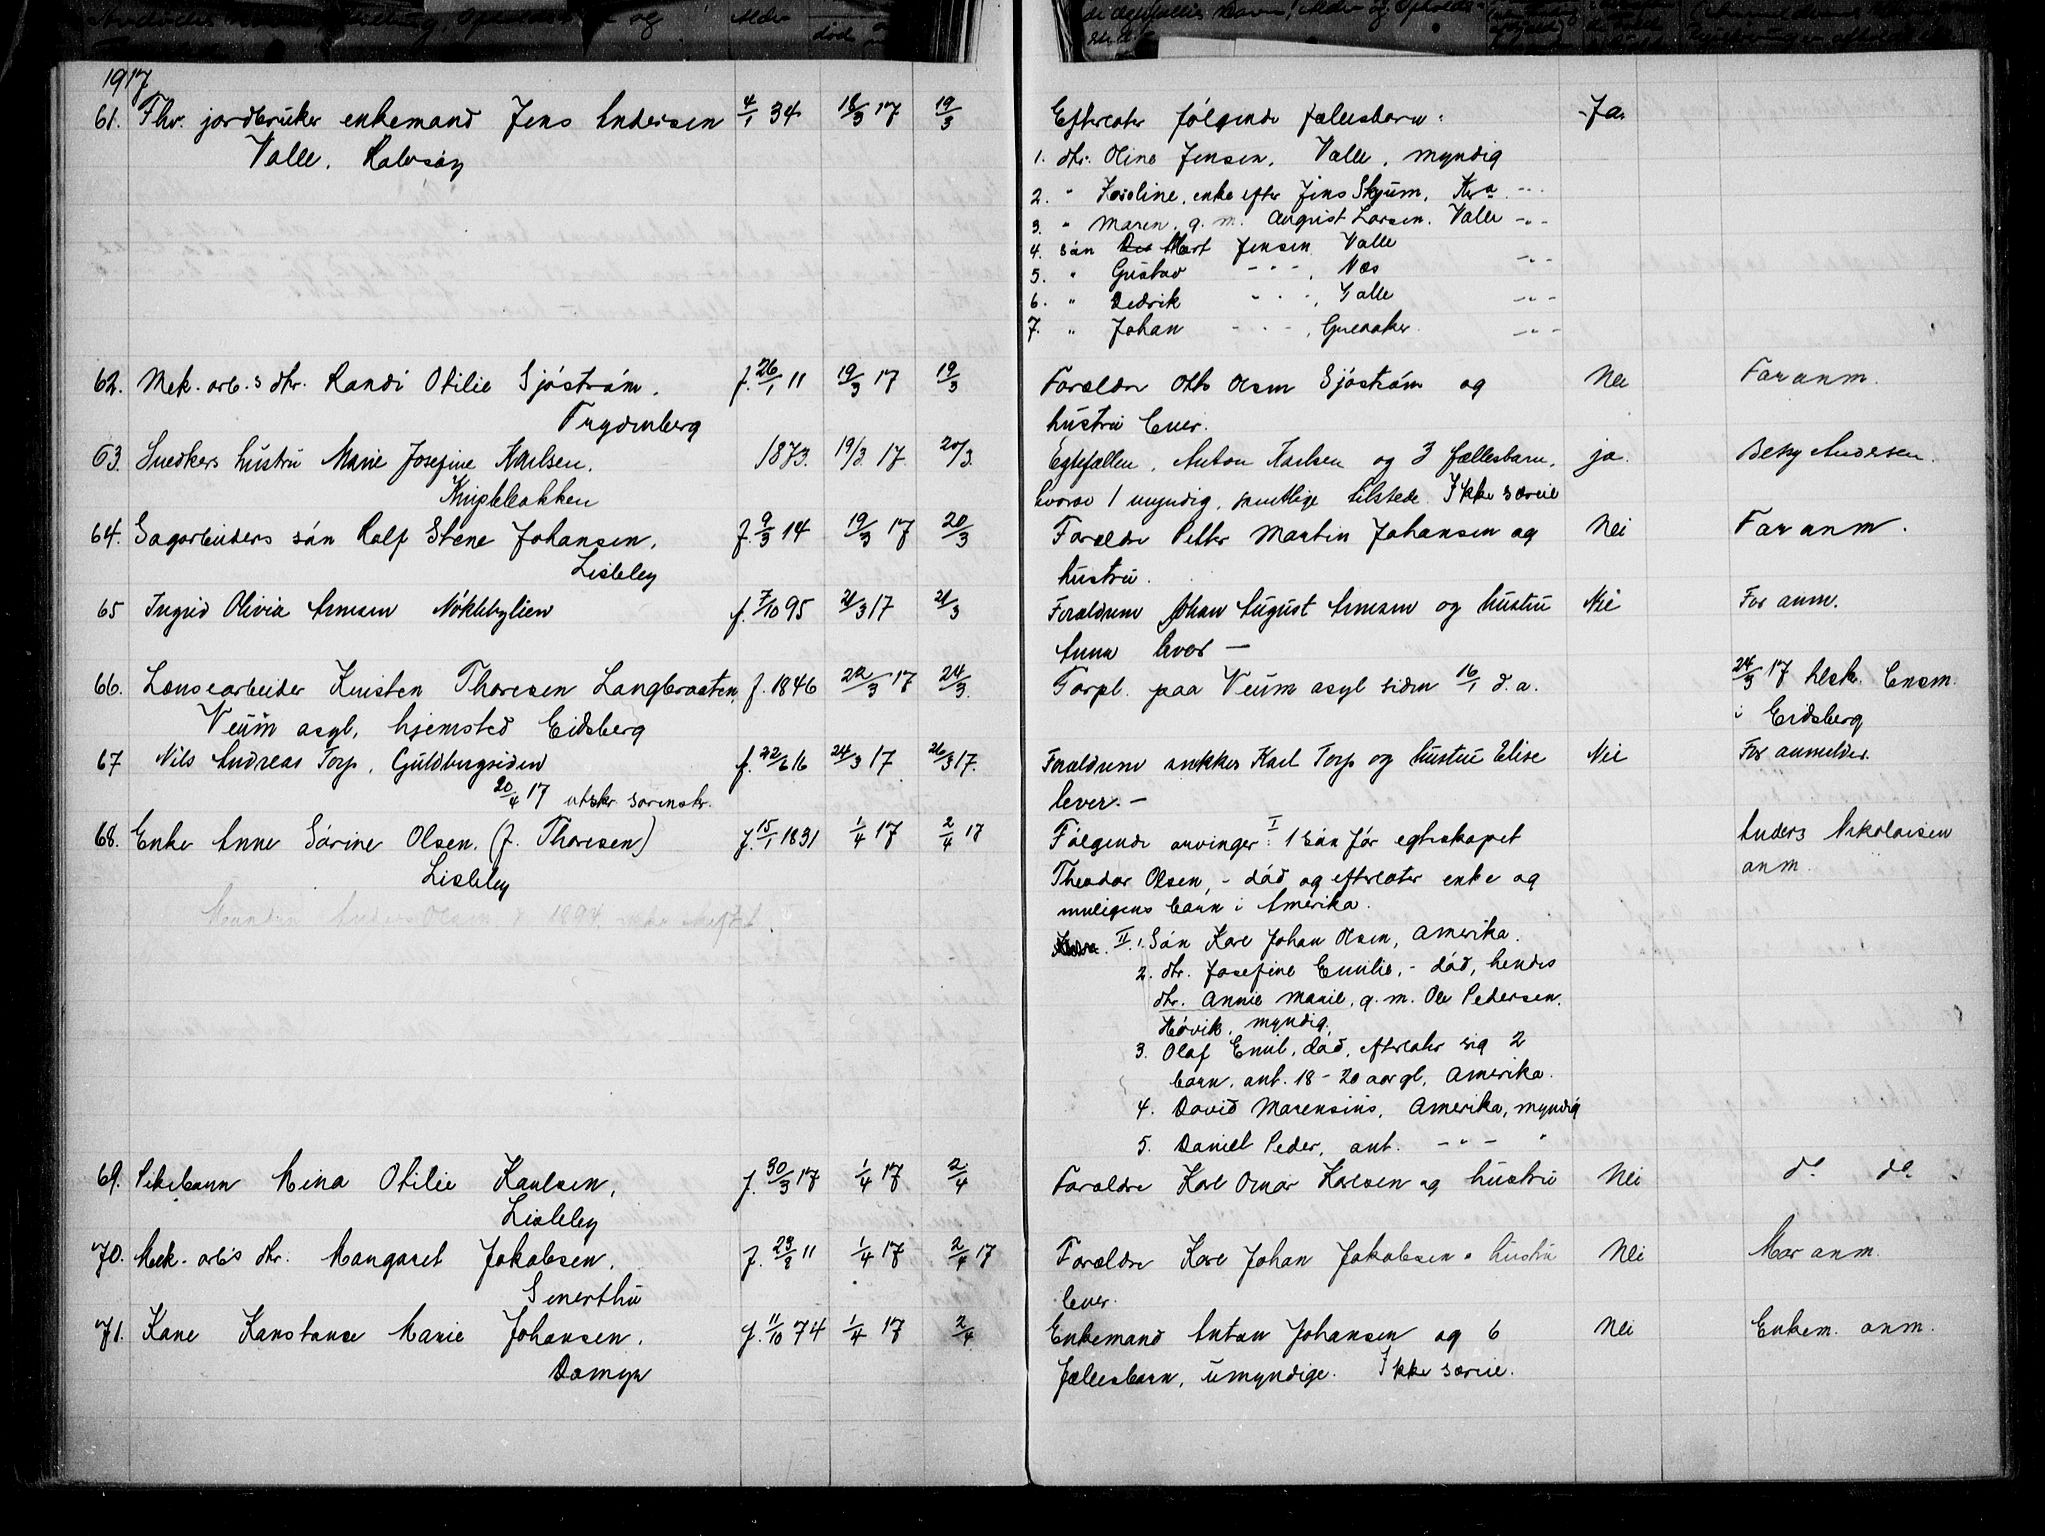 1917
61. Fhv. jordbruker enkemand Jens Andersen 4/1 34 18/3 17 19/3
Valle, Rolvsøy
Efterlater følgende fællesbarn: Ja.
1. dtr. Oline Jensen, Valle, myndig
2. " Karoline, enke efter Jens Skjum, Kra -"-
3. " Maren, g. m. August Larsen, Valle -"-
4. søn Mart Jensen Valle
5. " Gustav - " -, Næs -"-
6. " Dedrik - " -, Valle -"-
7. " Johan - " -, Greaaker. -"-
62. Mek. arb.s dtr. Randi Otilie Sjøstrøm, f. 26/1 11 19/3 17 19/3
Trydenberg
Forældre Otto Olsen Sjøstrøm og Nei Far anm.
hustru lever.
63. Snedkers hustru Marie Josefine Karlsen. 1873. 19/3 17 20/3.
Kniplebakken
Egtefællen, Anton Karlsen og 3 fællesbarn, ja. Betzy Andersen.
hvorav 1 myndig, samtlige tilstede. Ikke særeie
64. Sagarbeiders søn Rolf Stene Johansen, f. 9/3 14 19/3 17 20/3
Lisleby
Forældre Petter Martin Johansen og Nei Far anm.
hustru.
65 Ingrid Olivia Arnesen Nøklebylien f. 7/10 95 21/3 17 21/3
Forældrene Johan August Arnesen og hustru Nei Far anm.
Anna lever —
66. Lensearbeider Kristen Thoresen Langbraaten, f. 1846 22/3 17 24/3.
Veum asyl, hjemsted Eidsberg
Forpl. paa Veum asyl siden 16/1 d. a. 24/3 17 tilskr. Lensm.
i Eidsberg
67 Nils Andreas Torp, Guldbergsiden f. 22/6 16 24/3 17 26/3 17.
20/4 17 utskr. sorenskr.
Forældrene snekker Karl Torp og hustru Elise Nei Far anmelder.
lever. —
68. Enke Anne Sørine Olsen, (f. Thoresen) f. 15/1 1831 1/4 17 2/4 17
Lisleby
Manden Anders Olsen d. 1894
Følgende arvinger: I 1 søn før egteskapet Anders Nikolaisen
Theodor Olsen, - død og efterlater enke og anm.
muligens barn i Amerika.
II. 1. Søn Karl Johan Olsen, Amerika.
2. dtr. Josefine Emilie, - død, hendes
dtr. Annie Marie, g. m. Ole Pedersen,
Høvik, myndig.
3. Olaf Emil, død, efterlater sig 2
barn, ant. 18 - 20 aar gl, Amerika.
4. David Marensius, Amerika, myndig
5. Daniel Peder, ant. - " - "
69. Pikebarn Mina Otilie Karlsen, f. 30/3 17 1/4 17 2/4
Lisleby
Forældre Karl Omar Karlsen og hustru Nei do do
70. Mek. arb's dtr. Margaret Jakobsen, f. 23/8 11 1/4 17 2/4 17
Smerthu
Forældre Karl Johan Jakobsen o hustru Nei Mor anm.
lever.
71. Kone Konstanse Marie Johansen, f. 11/10 74 1/4 17 2/4
Damyr
Enkemand Anton Johansen og 6 Nei Enkem. anm.
fællesbarn, umyndige. Ikke særeie.